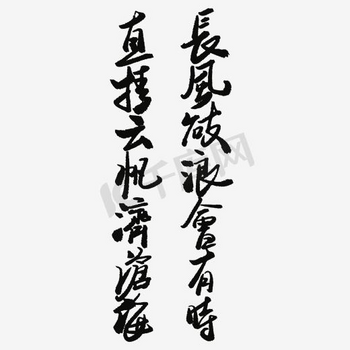 長風破浪會有時
直挂云帆濟滄海